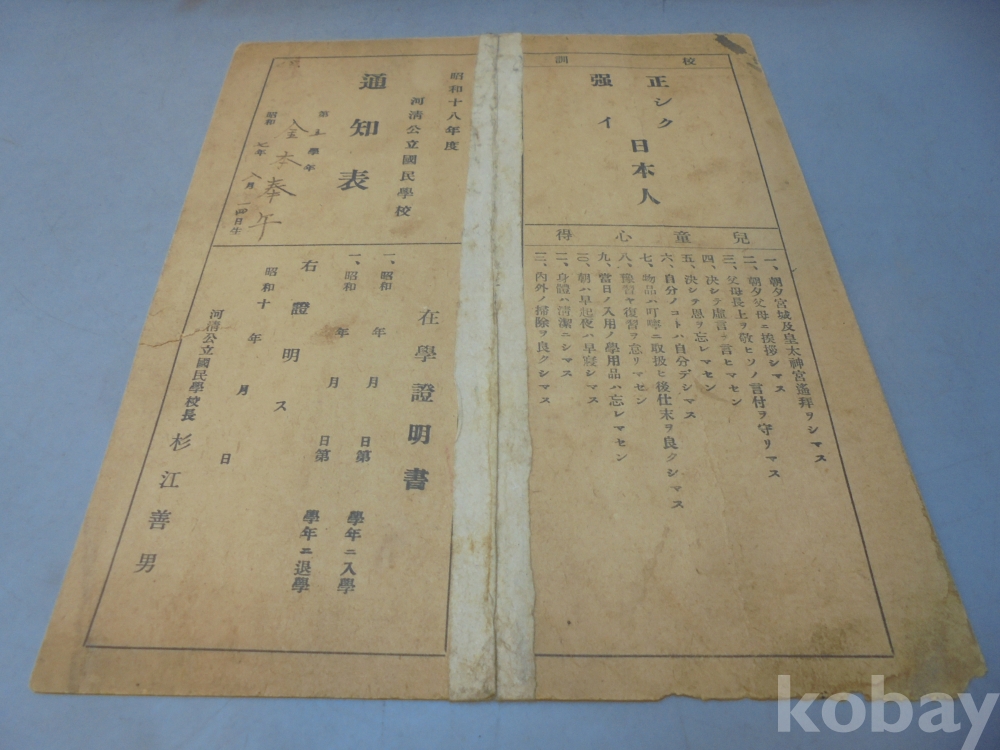 校訓
正シク
强イ
日本人
兒童心得
一、朝夕宮城及皇太神宮遙拜ヲシマス
二、朝夕父母ニ挨拶シマス
三、父母長上ヲ敬ヒソノ言付ヲ守リマス
四、決シテ虛言ヲ言ヒマセン
五、決シテ恩ヲ忘レマセン
六、自分ノコトハ自分デシマス
七、物品ハ叮嚀ニ取扱ヒ後仕末ヲ良クシマス
八、豫習ヤ復習ヲ怠リマセン
九、當日ノ入用ノ學用品ハ忘レマセン
一〇、朝ハ早起夜ハ早寢シマス
一一、身體ハ淸潔ニシマス
一二、內外ノ掃除ヲ良クシマス
昭和十八年度
河淸公立國民學校
通知表
第五學年
金本奉午
昭和七年八月一四日生
在學證明書
一、昭和 年 月 日第 學年ニ入學
一、昭和 年 月 日第 學年ニ退學
右證明ス
昭和十 年 月 日
河淸公立國民學校長 杉江善男
kobay